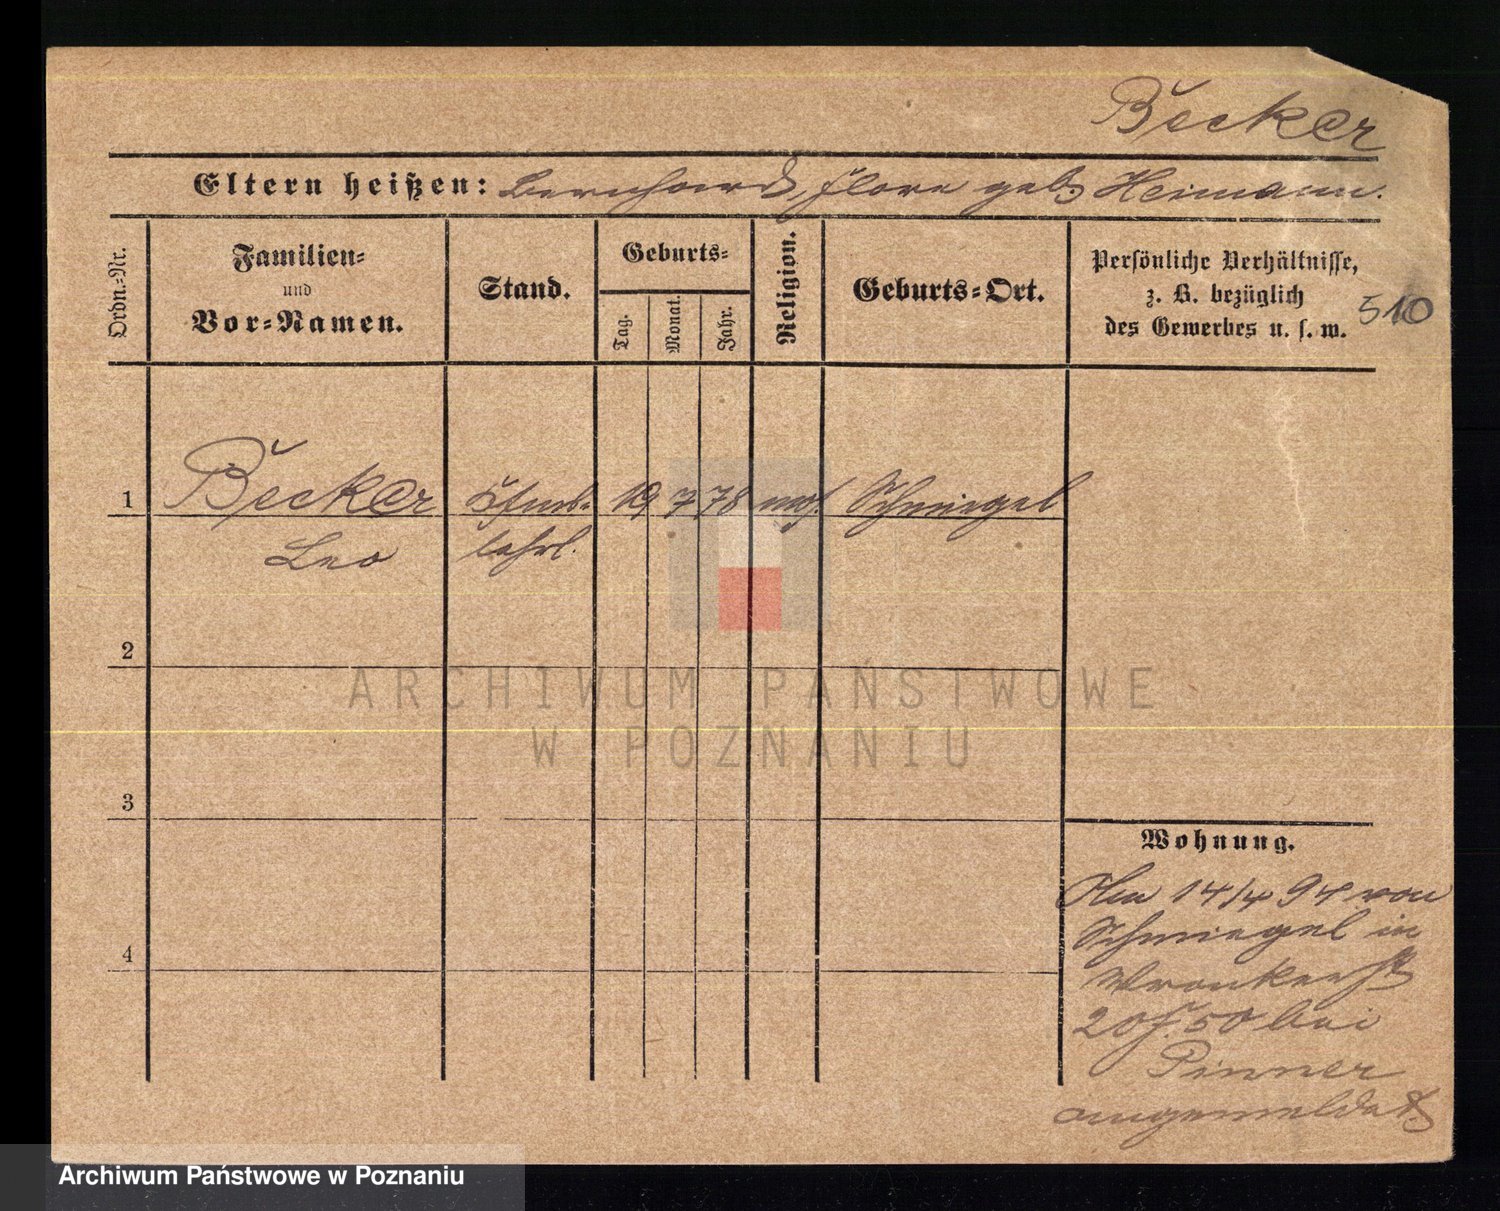 Becker
Eltern heißen: Bernhard, Flora geb. Heimann.
Ordn.-Nr.
Familien-
und
Vor-Namen.
Stand.
Geburts-
Tag.
Monat.
Jahr.
Religion.
Geburts-Ort.
Persönliche Verhältnisse,
z. B. bezüglich
des Gewerbes u. s. w.
510
1 Becker 19 7 78 mos. Schmiegel
Leo lehrl.
2
3
4
Wohnung.
Am 14/4 94 von
Schmiegel in
Wronkerstr
50 bei
Pinner
angemeldet
ARCHIWUM PAŃSTWOWE
W POZNANIU
Archiwum Państwowe w Poznaniu